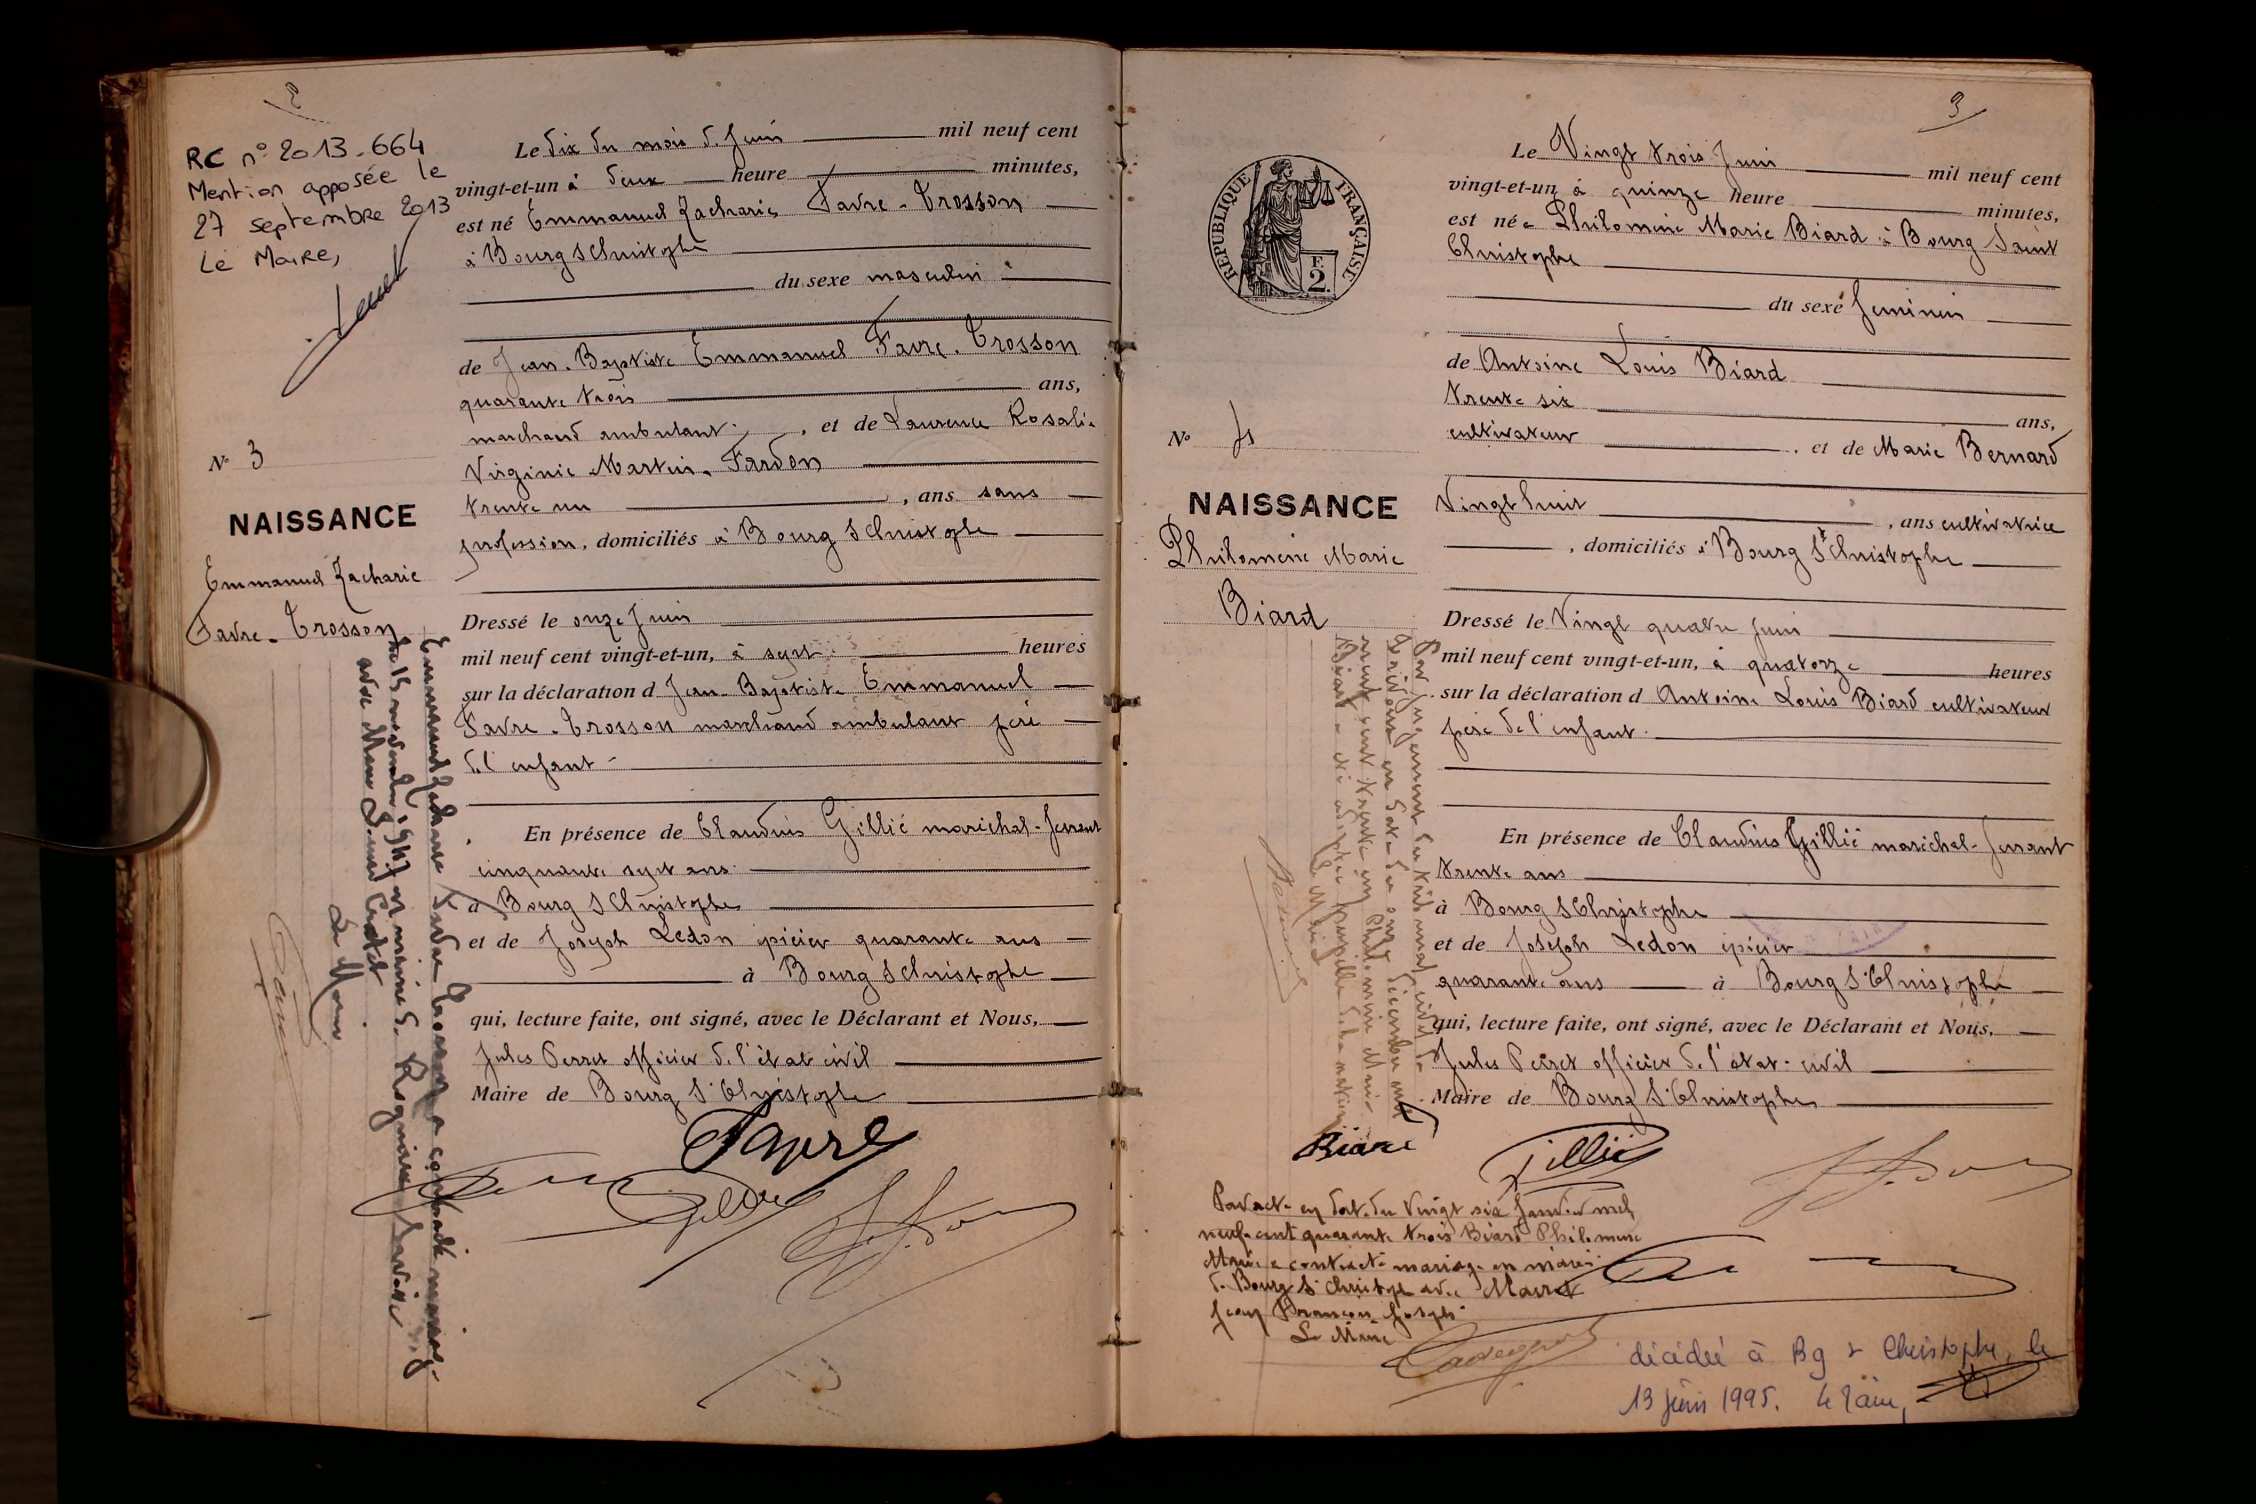 2
RC n° 2013.664
Mention apposée le
27 septembre 2013
Le Maire,
N° 3
NAISSANCE
Emmanuel Zacharie
Favre-Trosson
Emmanuel Zacharie Favre Trosson a contracté mariage
le 15 novembre 1947 en mairie de
avec Marie
Le Maire
Le dix du mois de Juin mil neuf cent
vingt-et-un à deux heure minutes,
est né Emmanuel Zacharie Favre-Trosson
à Bourg St Christophe
du sexe masculin
de Jean-Baptiste Emmanuel Favre-Trosson
quarante trois ans,
marchand ambulant, et de Laurence Rosalie
Virginie Martin-Fardon
trente un, ans sans
profession, domiciliés à Bourg St Christophe
Dressé le onze Juin
mil neuf cent vingt-et-un, à sept heures
sur la déclaration d Jean-Baptiste Emmanuel
Favre-Trosson marchand ambulant père
de l'enfant
En présence de Claudius Gillié maréchal-ferrant
cinquante sept ans
à Bourg St Christophe
et de Joseph Ledon épicier quarante ans
à Bourg St Christophe
qui, lecture faite, ont signé, avec le Déclarant et Nous,
Jules Perret officier de l'état civil
Maire de Bourg St Christophe
Favre
3
RÉPUBLIQUE FRANÇAISE
F.
2.
N° 4
NAISSANCE
Philomène Marie
Biard
Par jugement du tribunal civil de
en date du onze décembre mil
neuf cent trente Philomène Marie
Biard a été adoptée pupille de la nation
Le Maire
Le Vingt trois Juin mil neuf cent
vingt-et-un à quinze heure minutes,
est née Philomène Marie Biard à Bourg Saint
Christophe
du sexe feminin
de Antoine Louis Biard
trente six ans,
cultivateur, et de Marie Bernard
Vingt huit, ans cultivatrice
, domiciliés à Bourg St Christophe
Dressé le Vingt quatre Juin
mil neuf cent vingt-et-un, à quatorze heures
sur la déclaration d Antoine Louis Biard cultivateur
père de l'enfant.
En présence de Claudius Gillié maréchal-ferrant
trente ans
à Bourg St Christophe
et de Joseph Ledon épicier
quarante ans à Bourg St Christophe
qui, lecture faite, ont signé, avec le Déclarant et Nous,
Jules Perret officier de l'état-civil
Maire de Bourg St Christophe
Biard
Gillié
Par acte en date du Vingt six Janvier mil
neuf cent quarante trois Biard Philomène
Marie a contracté mariage en mairie
de Bourg St Christophe avec
Jean François Joseph
Le Maire
décédée à Bg St Christophe, le
13 juin 1995. Le Maire,